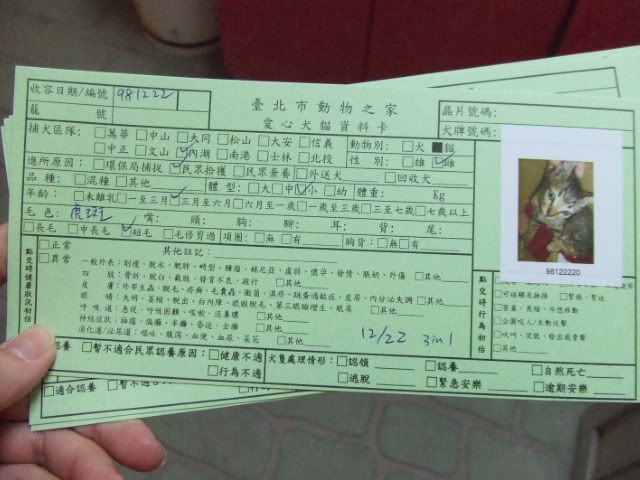 收容日期/編號 981222
臺北市動物之家
籠 號
愛心犬貓資料卡
晶片號碼:
犬牌號碼:
捕犬區隊: □萬華 □中山 □大同 □松山 □大安 □信義 動物別: □犬 ■貓
□中正 □文山 ☑內湖 □南港 □士林 □北投 性 別: □雄 ☑雌
進所原因: □環保局捕捉 ☑民眾拾獲 □民眾棄養 □外送犬 □回收犬
品 種: □混種 □其他 體 型: □大 □中 ☑小 □幼 體重: Kg
年齡: □未離乳 □一至三月 ☑三月至六月 □六月至一歲 □一至三歲 □三至七歲 □七歲以上
毛 色: 虎斑 嘴: 頭: 胸: 腳: 耳: 背: 尾:
□長毛 □中長毛 ☑短毛 □毛修剪過 項圈: □無 □有 胸背: □無 □有
98122220
點交時健康狀況初估
□正常
□異常
其他註記:
一般外表: 削瘦、脫水、肥胖、畸型、腫瘤、赫尼亞、虛弱、懷孕、發情、脹奶、外傷 □其他
四 肢: 骨折、脫臼、截肢、發育不良、跛行 □其他
皮 膚: 外寄生蟲、脫毛、疥癬、毛囊蟲、黴菌、濕疹、類蠱過敏症、皮屑、內分泌失調 □其他
眼 睛: 失明、萎縮、脫出、白內障、眼瞼脫毛、第三眼瞼增生、眼屎 □其他
呼 吸 道: 急促、呼吸困難、咳嗽、流鼻膿 □其他
神經症狀: 抽搐、偏癱、半癱、昏迷、全癱 □其他
消化道/泌尿道: 嘔吐、腹瀉、血便、血尿、呆菜 □其他
12/22 3in1
點交時行為初估
□可碰觸及撫摸 □緊張、緊迫
□害羞、畏縮、不想移動
□企圖咬人/主動攻擊
□吠叫、哭號、發出威脅聲
□其他
認養 □暫不適合民眾認養原因: □健康不適
□行為不適
犬隻處理情形: □認領 □認養 □自然死亡
□逃脫 □緊急安樂 □逾期安樂
□適合認養